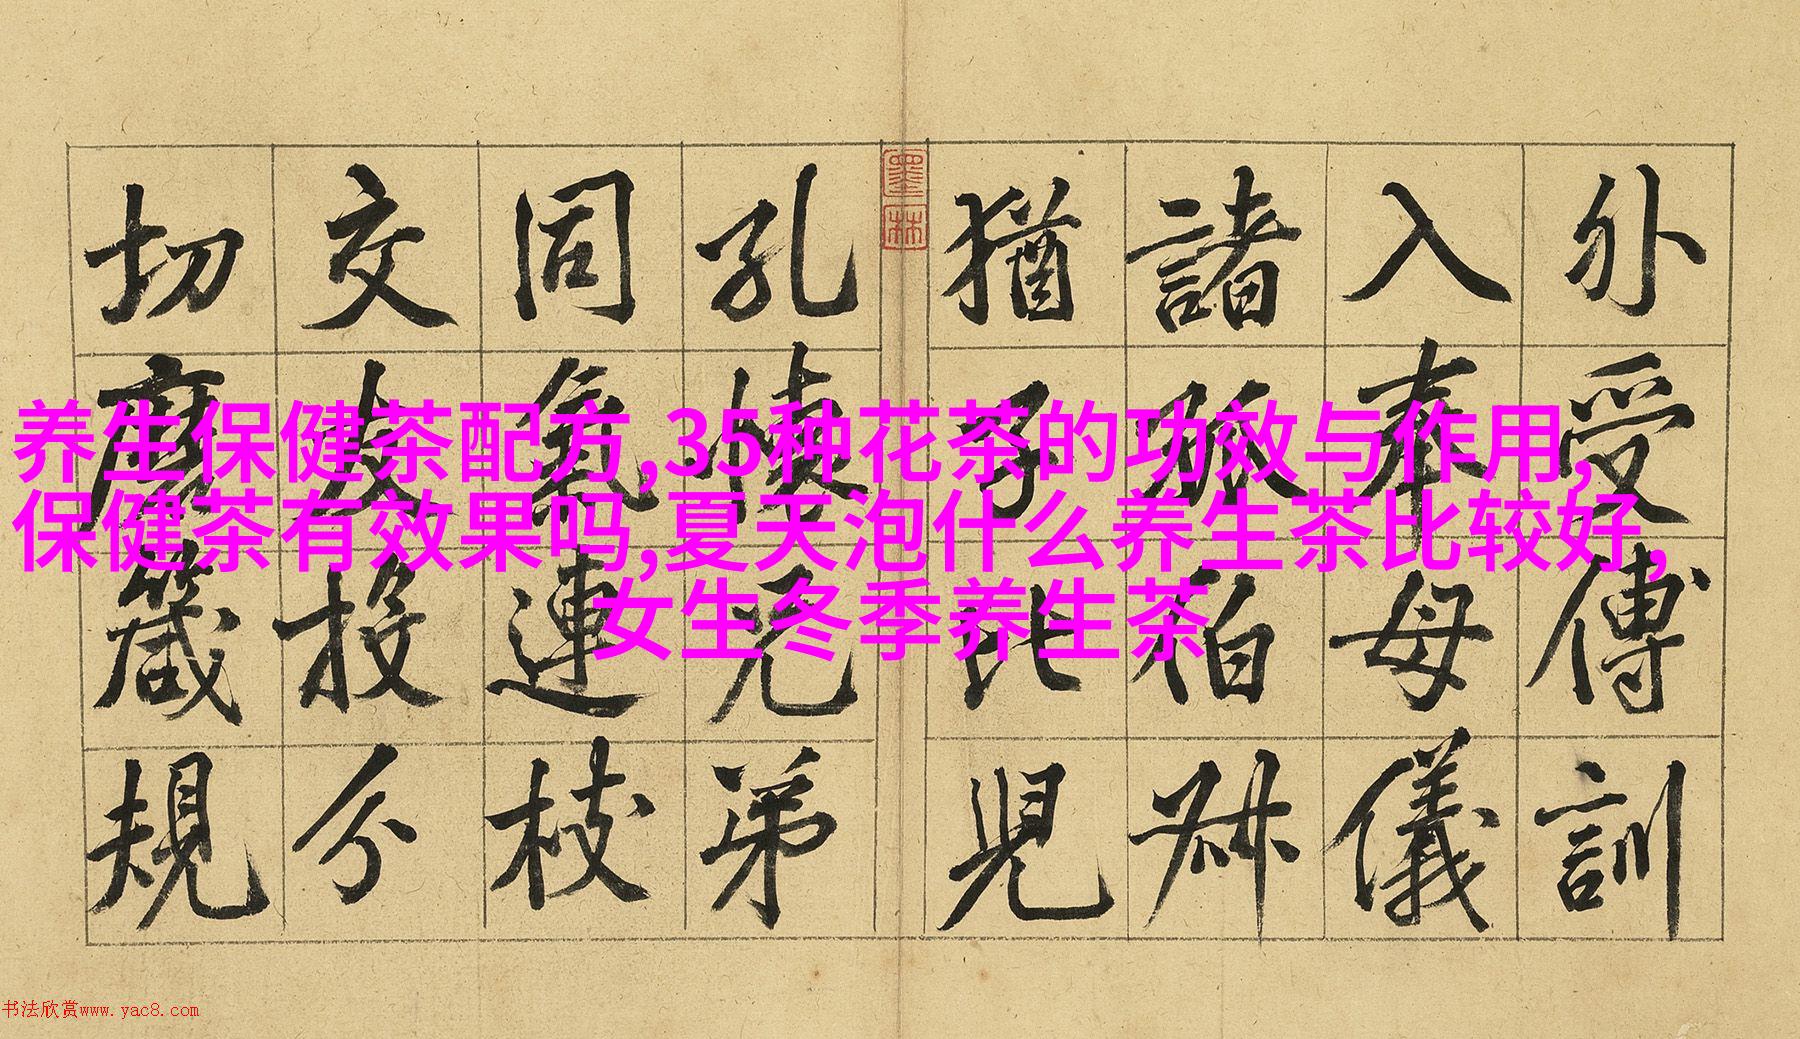 外受傅訓
入奉母儀
諸姑伯叔
猶子比兒
墨林
孔懷兄弟
同氣連枝
交友投分
切磨箴規
养生保健茶配方,35种花茶的功效与作用,
保健茶有效果吗,夏天泡什么养生茶比较好,
女生冬季养生茶
书法欣赏www.yac8.com